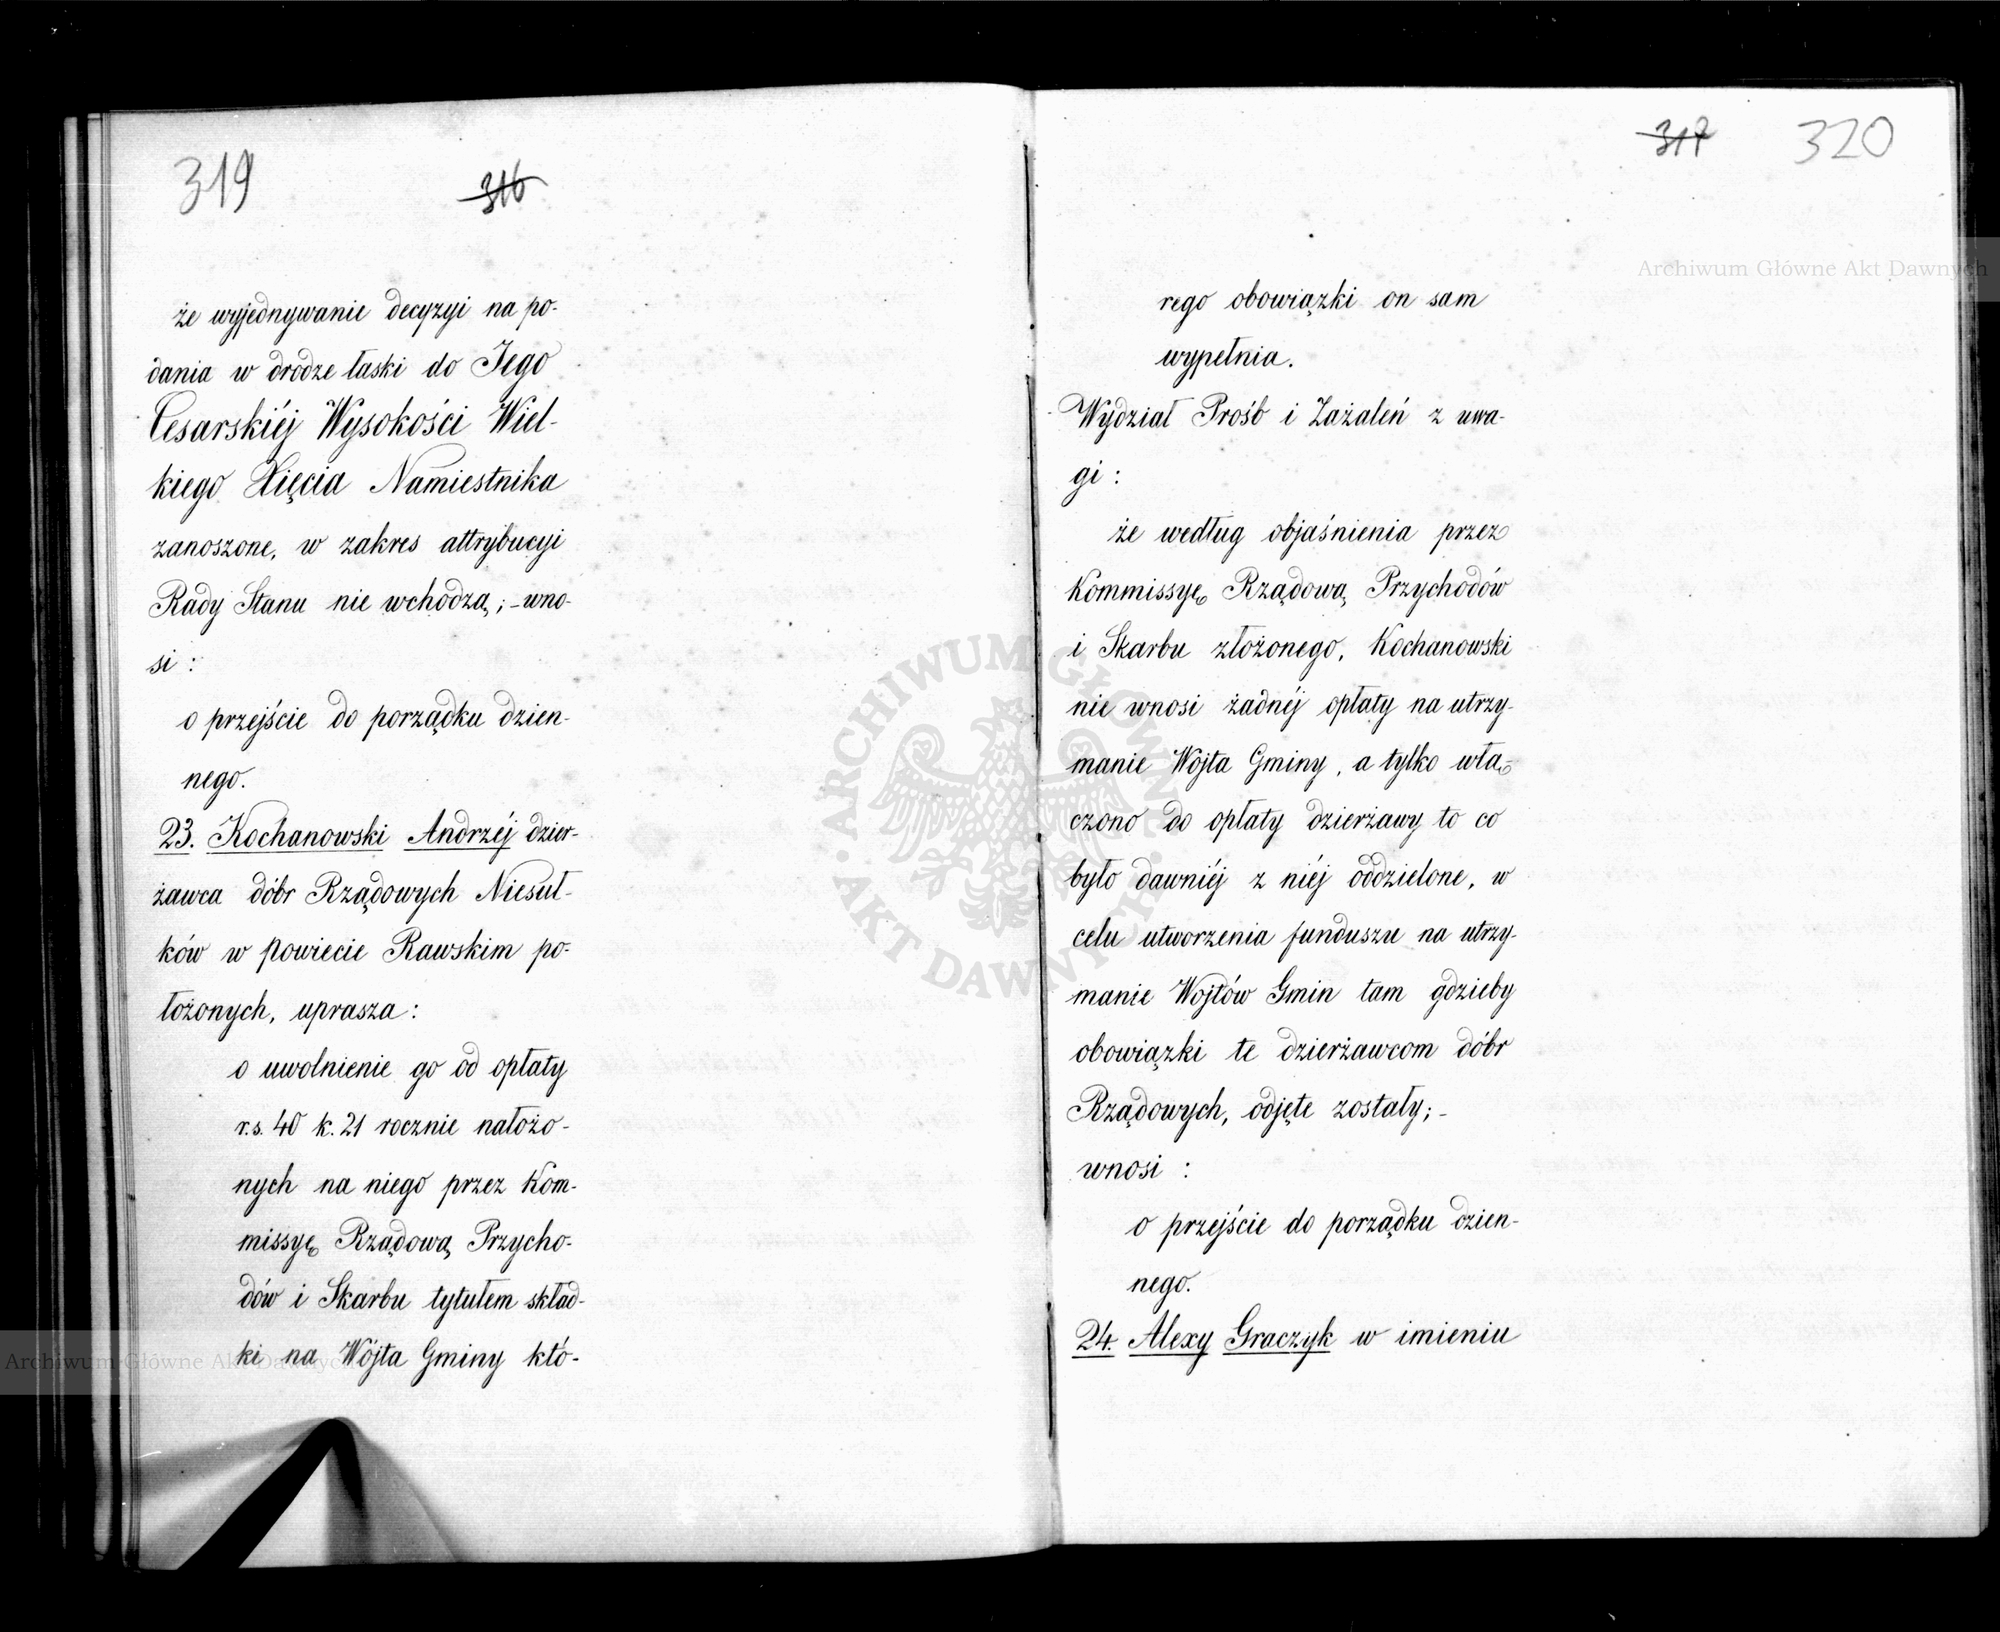 319 316
że wyjednywanie decyzyi na po-
dania w drodze łaski do Jego
Cesarskiéj Wysokości Wiel-
kiego Xięcia Namiestnika
zanoszone, w zakres attrybucyi
Rady Stanu nie wchodzą; - wno-
si :
o przejście do porządku dzien-
nego.
23. Kochanowski Andrzéj dzier-
żawca dóbr Rządowych Niesuł-
ków w powiecie Rawskim po-
łożonych, uprasza :
o uwolnienie go od opłaty
r.s. 40 k. 21 rocznie nałożo-
nych na niego przez Kom-
missyę Rządową Przycho-
dów i Skarbu tytułem skład-
ki na Wójta Gminy któ-
317 320
rego obowiązki on sam
wypełnia.
Wydział Prośb i Zażaleń z uwa-
gi :
że według objaśnienia przez
Kommissyę Rządową Przychodów
i Skarbu złożonego, Kochanowski
nie wnosi żadnéj opłaty na utrzy-
manie Wójta Gminy, a tylko włą-
czono do opłaty dzierżawy to co
było dawniéj z niéj oddzielone, w
celu utworzenia funduszu na utrzy-
manie Wojtów Gmin tam gdzieby
obowiązki te dzierżawcom dóbr
Rządowych, odjęte zostały; -
wnosi :
o przejście do porządku dzien-
nego.
24. Alexy Graczyk w imieniu
Archiwum Główne Akt Dawnych
Archiwum Główne Akt Dawnych
ARCHIWUM GŁÓWNE
AKT DAWNYCH